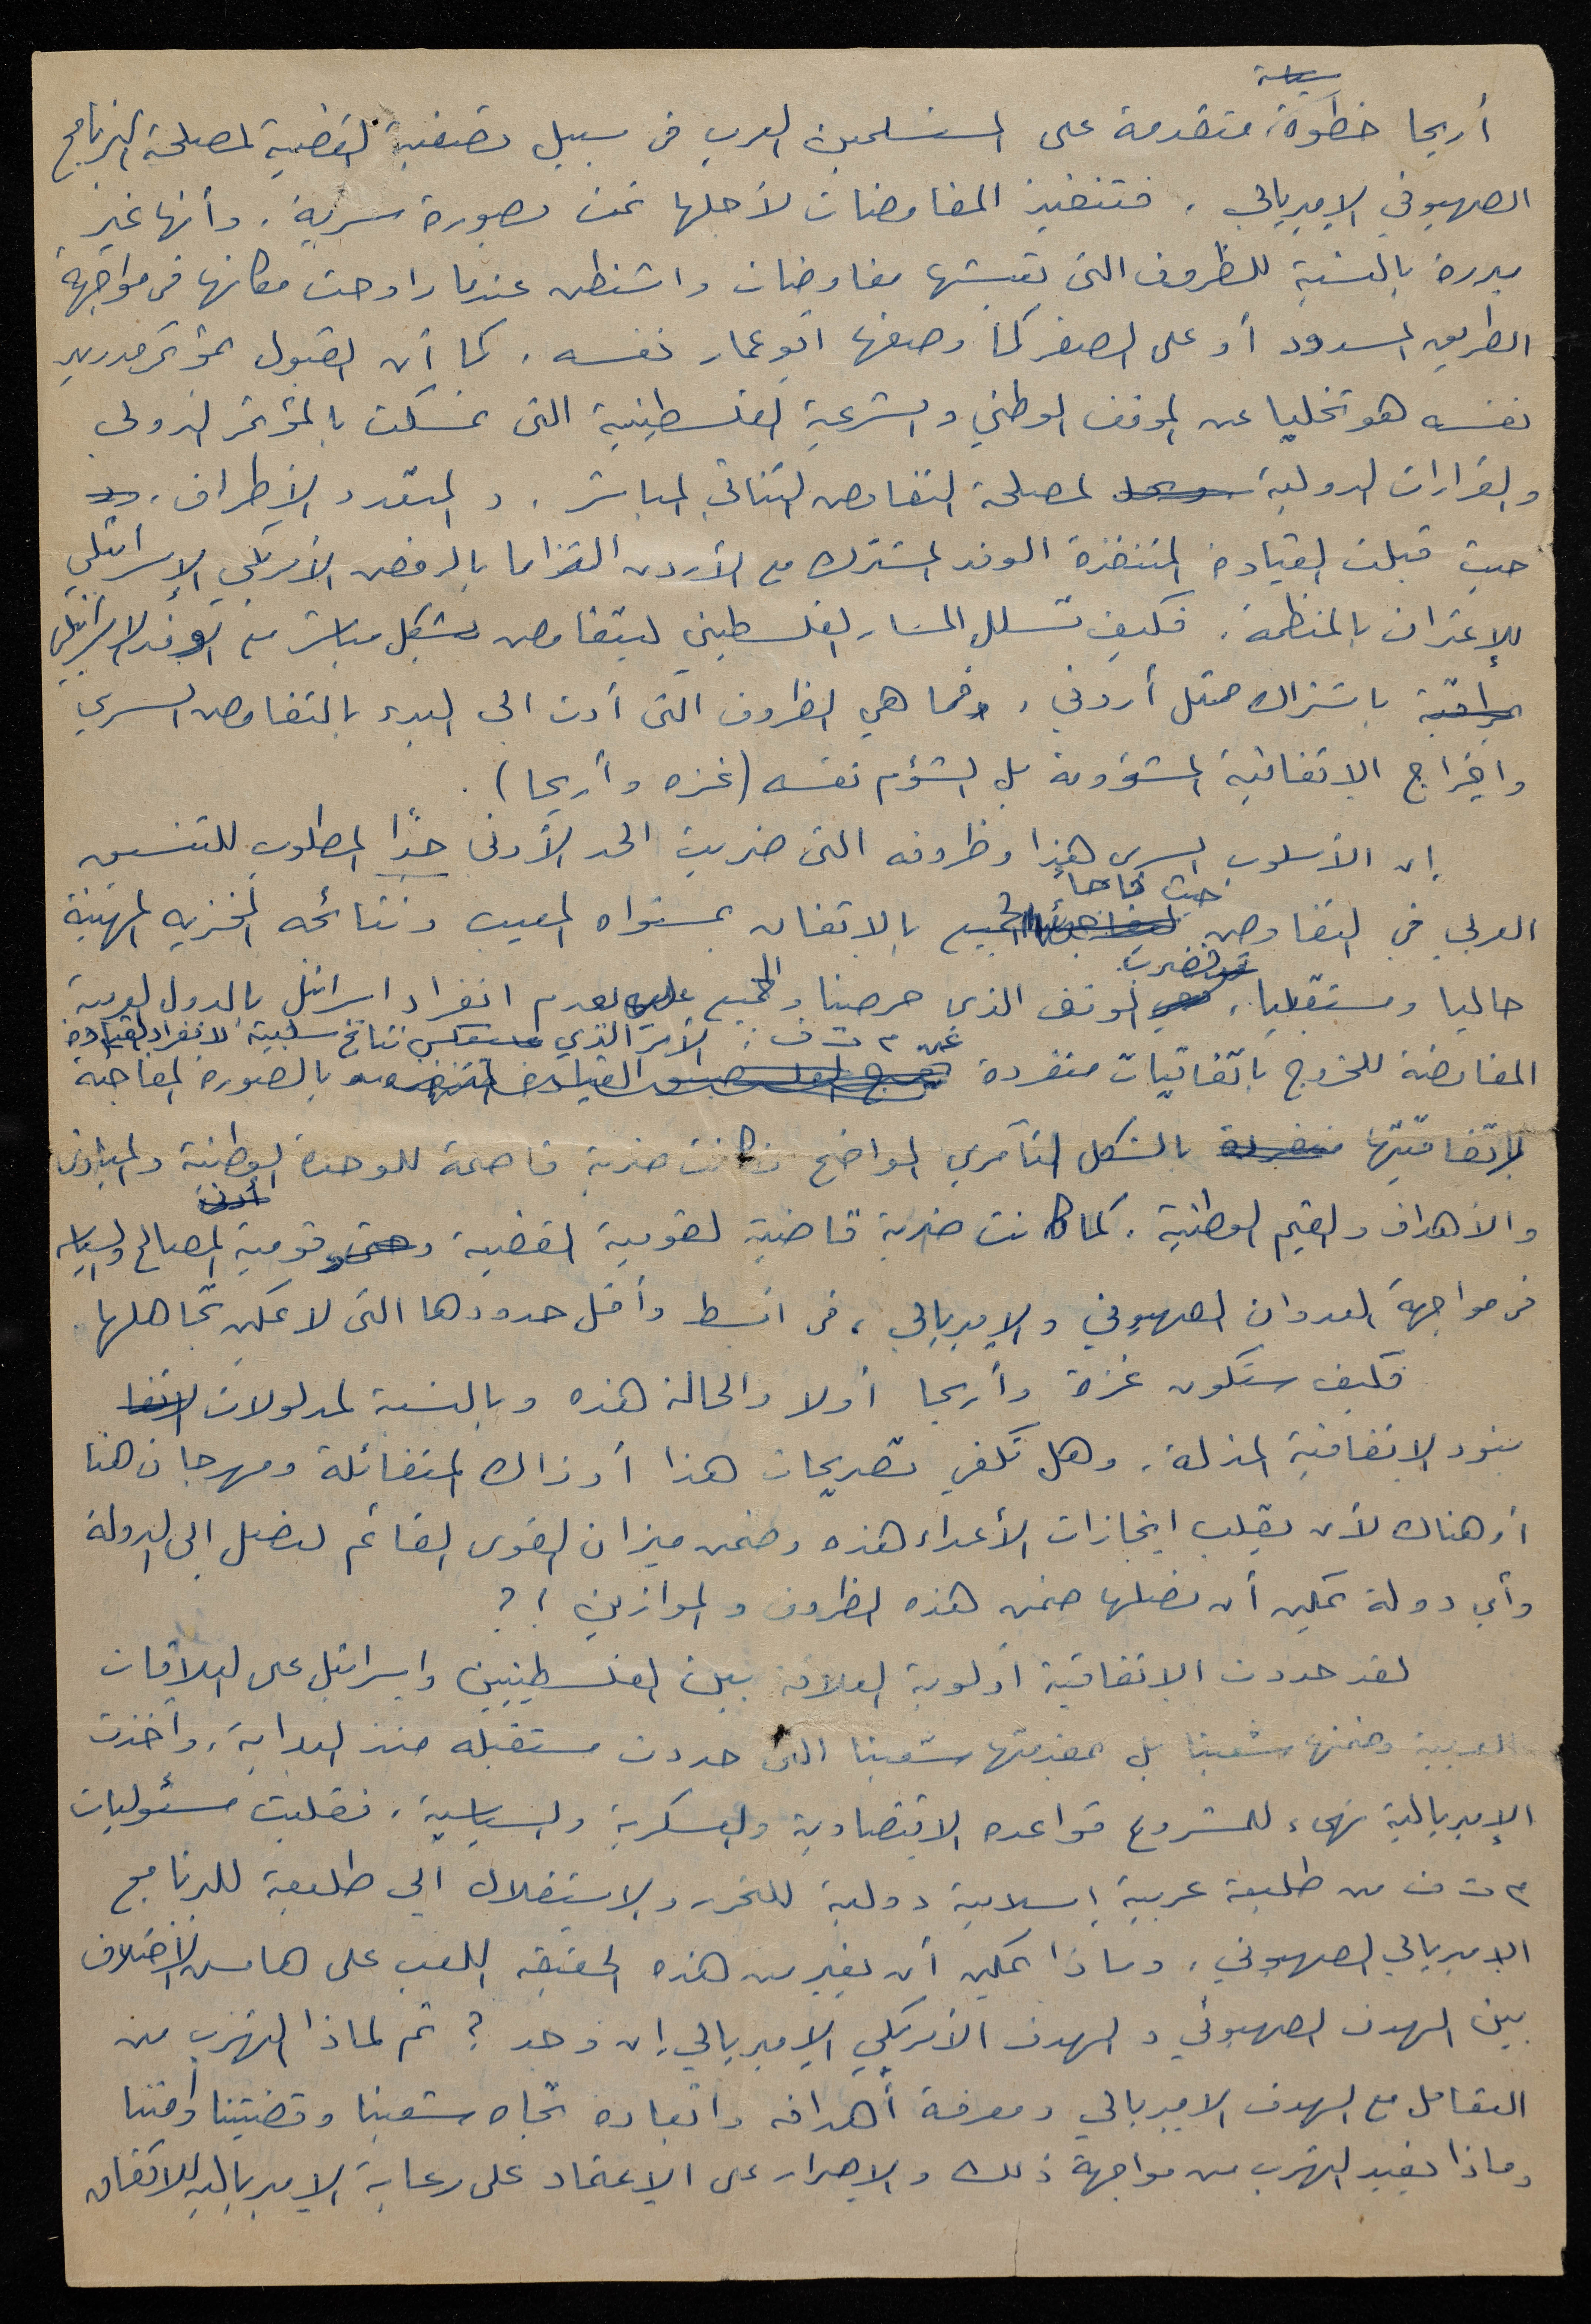 سياسة
أريحا خطوة، متقدمة على المستسلمين العرب في سبيل تصفية القضية لمصلحة البرنامج
الصهيوني الإمبريالي. فتنفيذ المفاوضات لأجلها تمت بصورة سرية. وأنها غير
مبررة بالنسبة للظروف التي تعيشها مفاوضات واشنطن عندما راوحت مكانها في مواجهة
الطريق المسدود أو على الصفر كما وصفها أبو عمار نفسه. كما أن القبول بمؤتمر مدريد
نفسه هو تخليا عن الموقف الوطني والشرعية الفلسطينية التي تمسكت بالمؤتمر الدولي
والقرارات الدولية لمصلحة التفاوض الثنائي المباشر. والمتعدد الأطراف.
حيث قبلت القيادة المتنفذة الوفد المشترك مع الأردن التزاما بالرفض الأمريكي الإسرائيلي
للإعتراف بالمنظمة. فكيف تسلل المسار الفلسطيني ليتفاوض بشكل مباشر مع الوفد الإسرائيلي
باشتراك ممثل أردني. وفما هي الظروف التي أدت الى البدء بالتفاوض السري
واخراج الاتفاقية المشؤومة بل الشؤم نفسه (غزه وأريحا).
إن الأسلوب السري هذا وظروفه التي ضربت الحد الأدنى جدًا المطلوب للتنسيق
حيث فاجأ
العربي في التفاوض الجميع بالاتفاق بمستواه المعيب ونتائجه المخزيه المهينة
حاليا ومستقبليا، الوقف الذي حرصنا والجميع لعدم انفراد اسرائيل بالدول العربية
عن م ت ف: الأمر الذي نتائج سلبية لانفراد القيادة
المفاوضة للخروج باتفاقيات منفردة بالصورة المفاجئة
لإتفاقيتها منفردة بالشكل التآمري الواضح فكانت ضربة قاصمة للوحدة الوطنية والمبادئ
والأهداف والقيم الوطنية. كما كانت ضربة قاضية لقومية القضية وقومية المصالح والسياسة
في مواجهة العدوان الصهيوني والإمبريالي، في ابسط وأقل حدودها التي لا يمكن تجاهلها.
فكيف ستكون غزة وأريحا أولا والحالة هذه وبالنسبة لمدلولات
بنود الاتفاقية المذلة. وهل تكفي تصريحات هذا أو ذاك المتفائلة ومهرجان هنا
أو هناك لأن يقلب انجازات الأعداء هذه وضمن ميزان القوى القائم لنصل إلى الدولة
وأي دولة يمكن أن نصلها ضمن هذه الظروف والموازين؟!
لقد حددت الاتفاقية أولوية العلاقة بين الفلسطينيين واسرائيل على العلاقات
العربية وضمنها شعبنا بل بمقدمتها شعبنا التي حددت مستقبله منذ البداية. وأخذت
الإمبريالية تهيء للمشروع قواعده الاقتصادية والعسكرية والسياسية. فقلبت مسئوليات
م ت ف من طليعة عربية إسلامية دولية للتحرر والاستقلال الى طليعة للبرنامج
الإمبريالي الصهيوني. وماذا يمكن أن يغير من هذه الحقيقه اللعب على هامش الإختلاف
بين الهدف الصهيوني والهدف الأمريكي الإمبريالي إن وجد؟ ثم لماذا التهرب من
التعامل مع الهدف الامبريالي ومعرفة أهدافه وابعاده تجاه شعبنا وقضيتنا وأمتنا
وماذا يفيد التهرب من مواجهة ذلك والإصرار على الإعتماد على رعاية الإمبرياليه للاتفاق